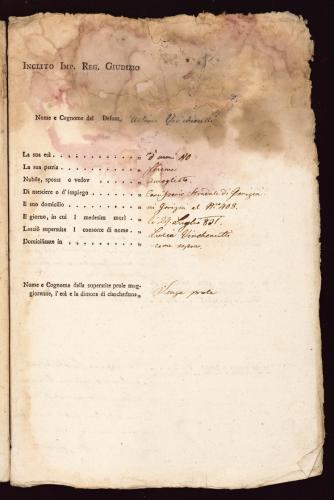 INCLITO IMP. REG. GIUDIZIO
Nome e Cognome del Defont. Antonio
La sua età „ d'anni 40
La sua patria „
Nubile, sposo o vedov „ Ammogliato
Di mestiere o d'impiego „
Il suo domicilio „ in al N.° 408.
Il giorno, in cui l medesim morì „ li 27 Luglio 831.
Lasciò superstite l consorte di nome „ Lucia
Domiciliato in „ come sopra
Nome e Cognome della superstite prole mag-
giorenne, l'età e la dimora di ciascheduno „ Senza prole